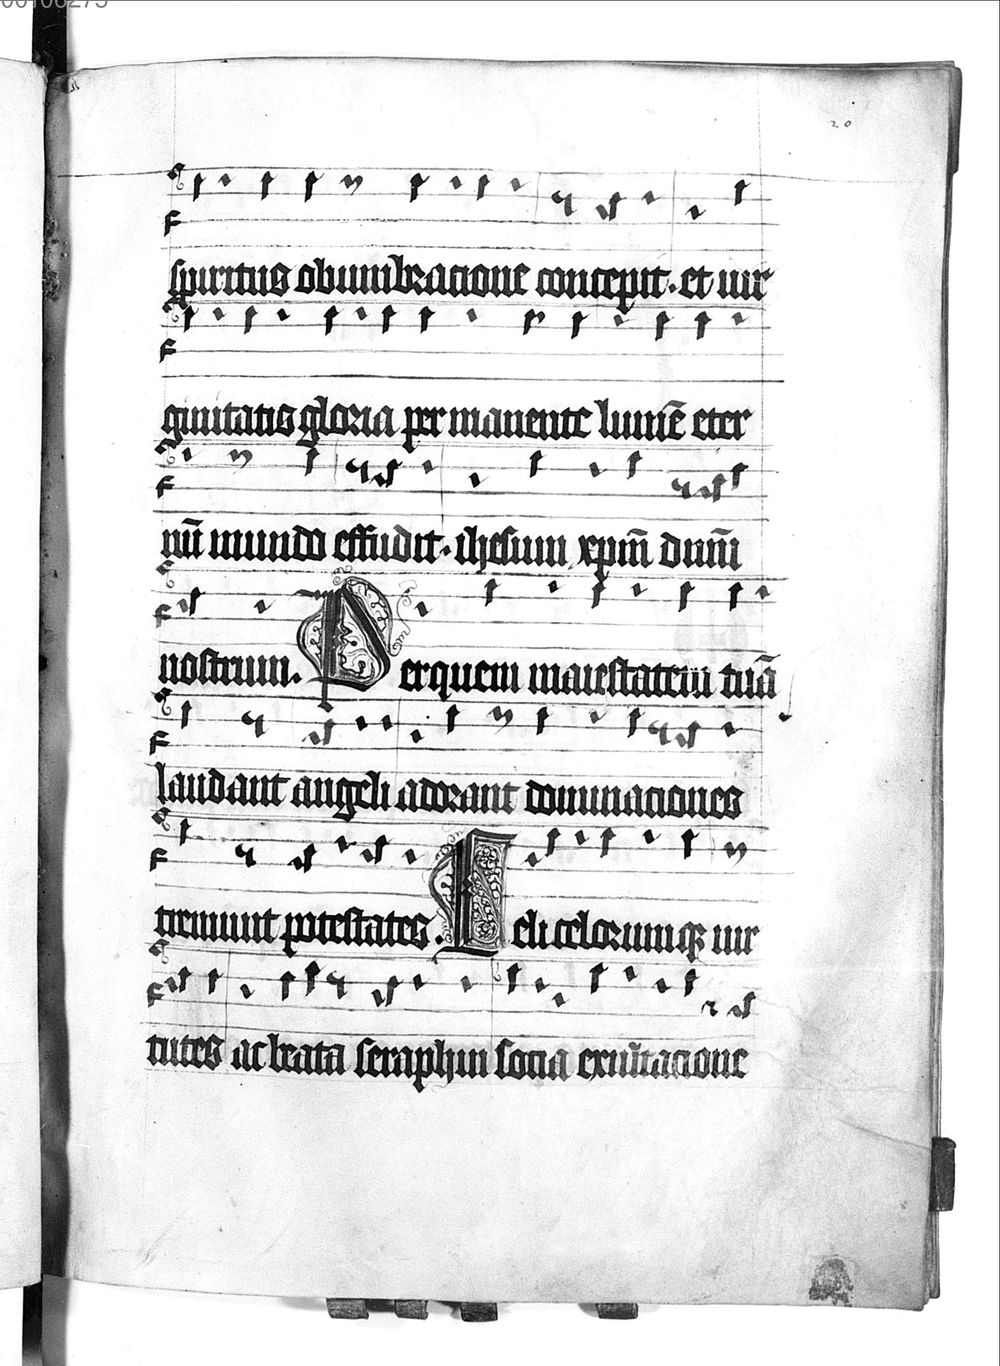 00106275
20
spiritus obumbracione concepit. et uir
ginitatis gloria permanente lumē eter
nū mundo effudit. ihesum xpm̄ dnm̄
nostrum. Per quem maiestatem tuā
laudant angeli adorant dominaciones
tremunt potestates. Celi celorumqꝫ uir
tutes ac beata seraphin socia exultacione